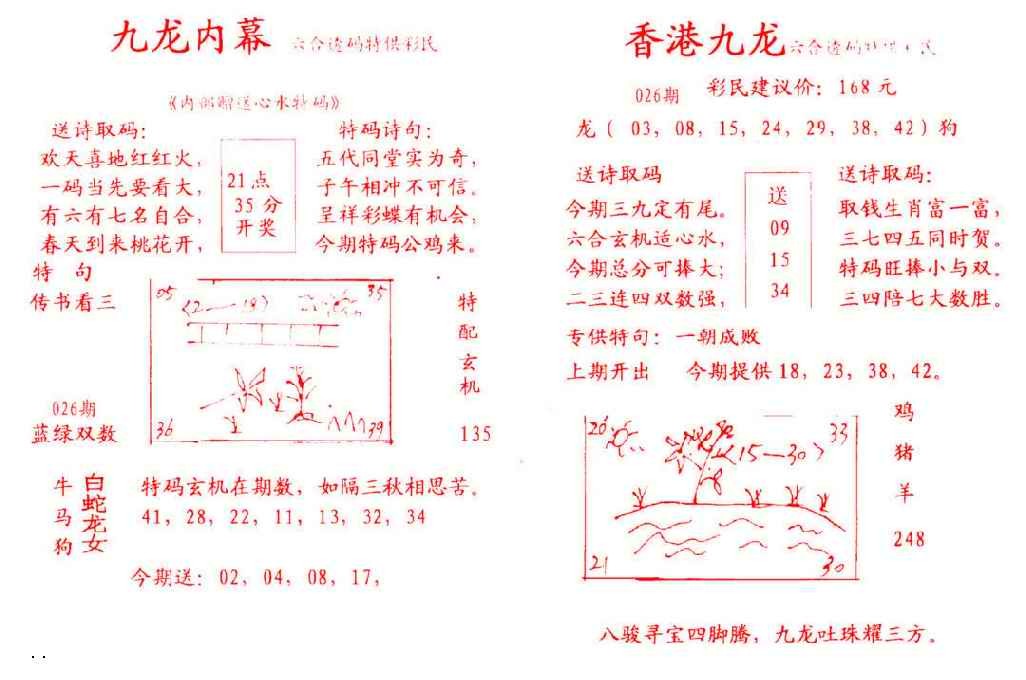 九龙内幕 六合透码特供彩民
《内部赠送心水特码》
送诗取码：
欢天喜地红红火，
一码当先要看大，
有六有七名自合，
春天到来桃花开，
21点
35分
开奖
特码诗句：
五代同堂实为奇，
子午相冲不可信。
呈祥彩蝶有机会，
今期特码公鸡来。
特 句
传书看三
026期
蓝绿双数
05
35
36
39
特
配
玄
机
135
牛
马
狗
白
蛇
龙
女
特码玄机在期数，如隔三秋相思苦。
41，28，22，11，13，32，34
今期送：02，04，08，17，
香港九龙六合透码特供彩民
026期 彩民建议价：168元
龙（ 03，08，15，24，29，38，42）狗
送诗取码
今期三九定有尾。
六合玄机适心水，
今期总分可捧大；
二三连四双数强，
送
09
15
34
送诗取码：
取钱生肖富一富，
三七四五同时贺。
特码旺捧小与双。
三四陪七大数胜。
专供特句：一朝成败
上期开出 今期提供18，23，38，42。
33
《15—30》
21
30
鸡
猪
羊
248
八骏寻宝四脚腾，九龙吐珠耀三方。